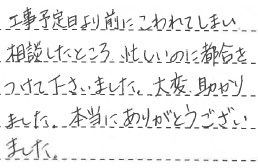 工事予定日より前にこわれてしまい
相談したところ 忙しいのに都合を
つけて下さいました。大変助かり
ました。本当にありがとうござい
ました。